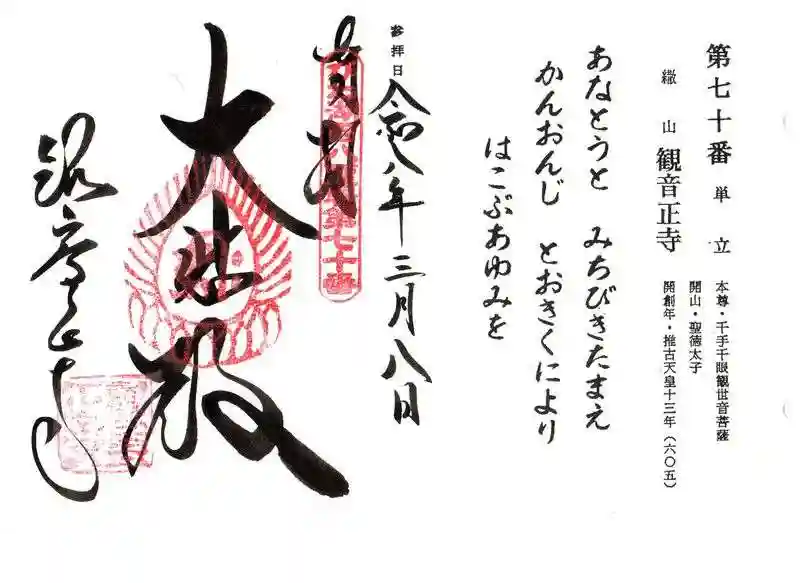 第七十番 単立
繖山 観音正寺
本尊・千手千眼観世音菩薩
開山・聖徳太子
開創年・推古天皇十三年(六〇五)
あなとうと みちびきたまえ
かんおんじ とおきくにより
はこぶあゆみを
参拝日 令和八年三月八日
奉拝
第七十番
大悲殿
観音正寺